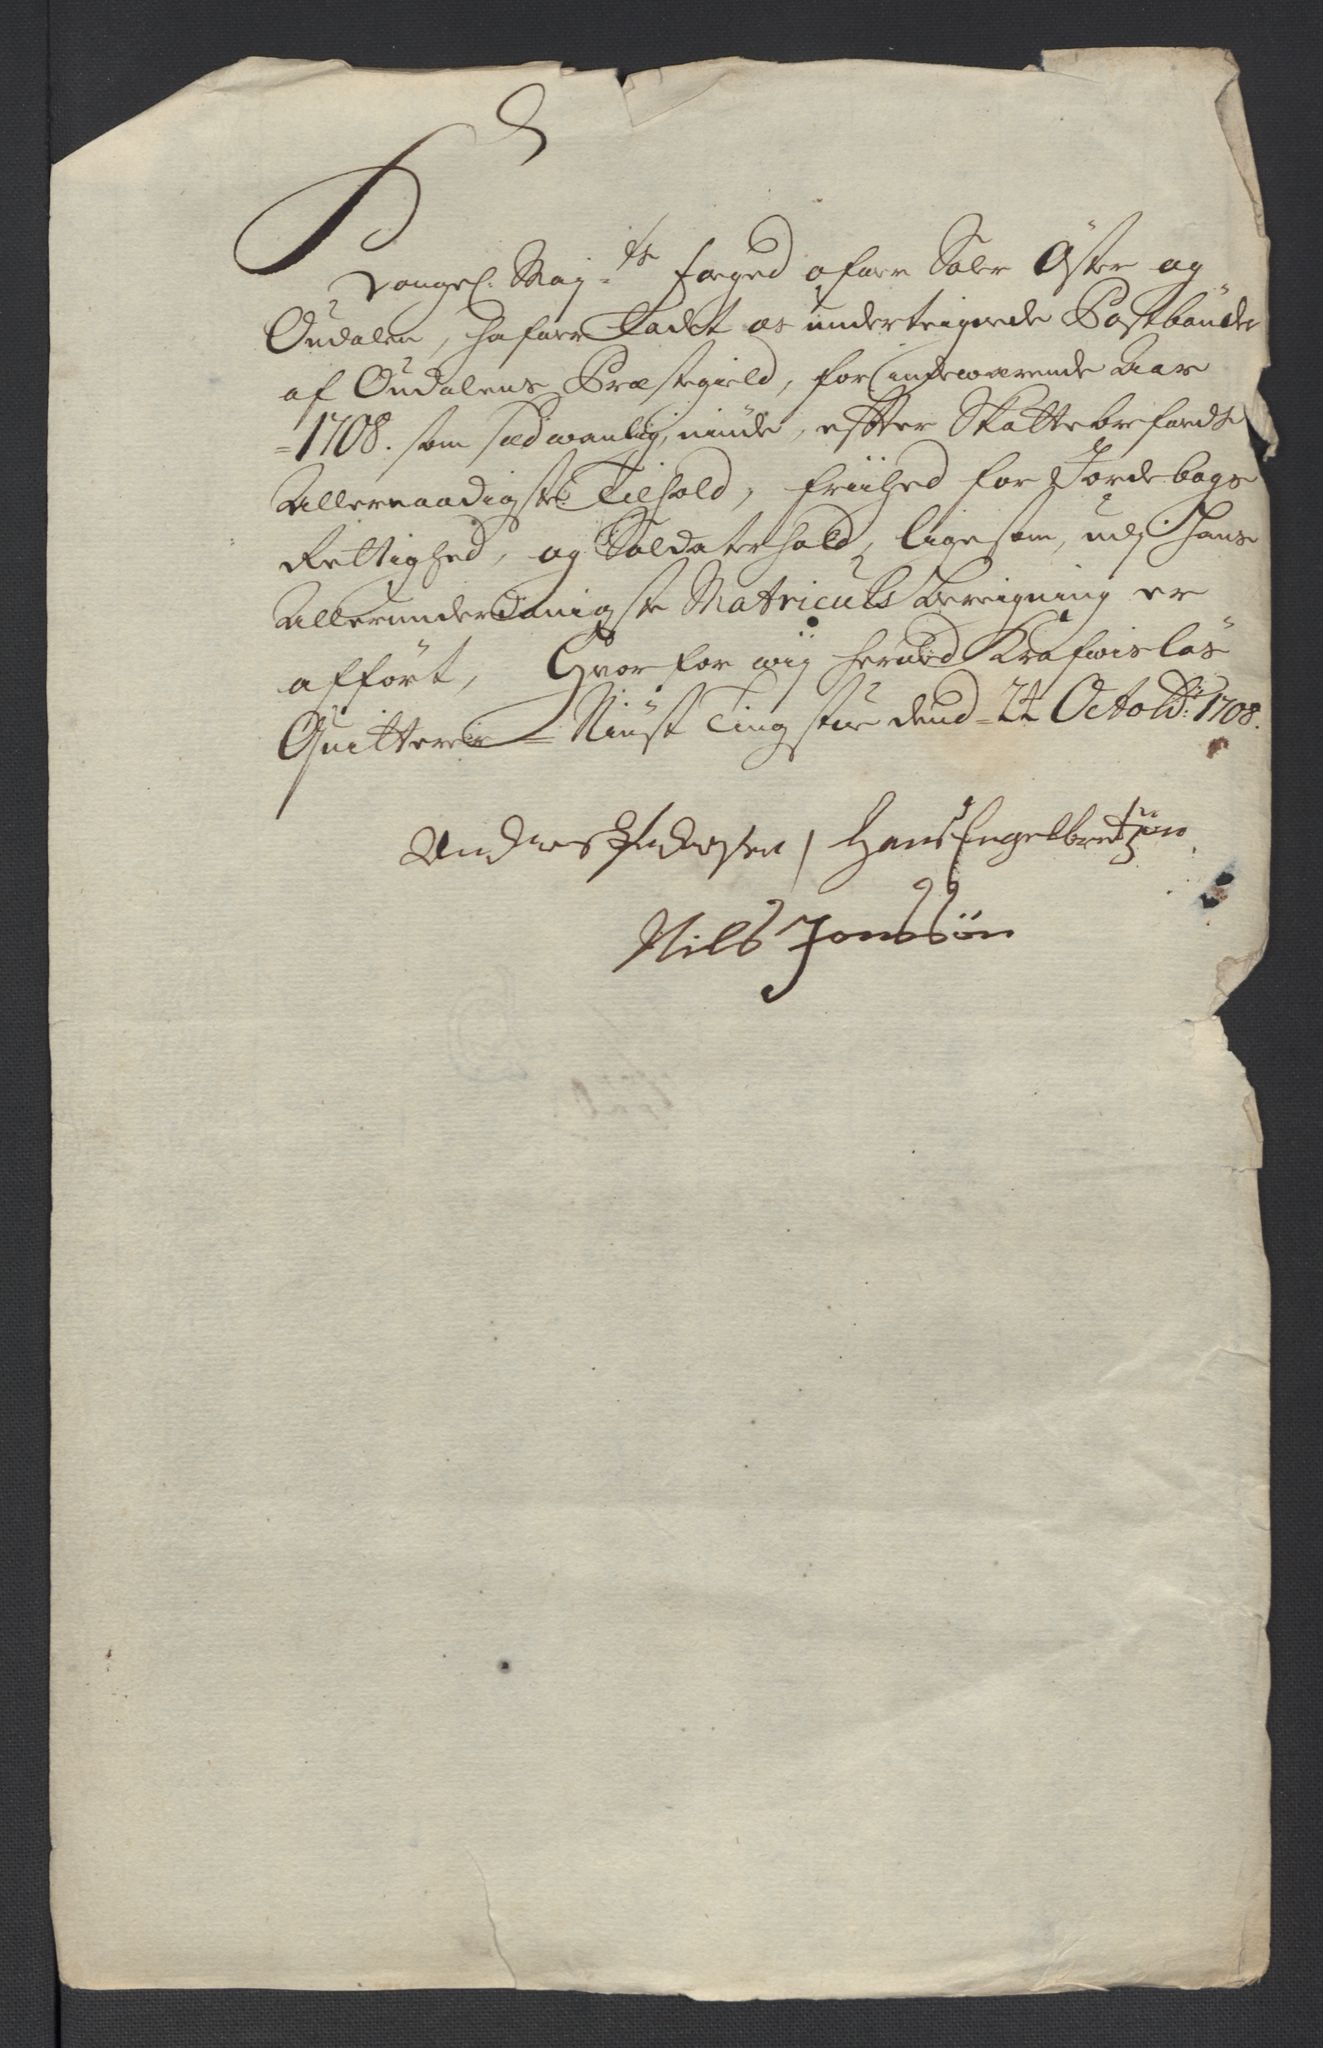 Kongel. Maj.ts foged ofuer Soløer Øster og
Oudalen, hafuer Ladet os underteignede Postbønder
af Oudalens Præstegield, for indeværende Aar
=1708. som sædvanlig niude, effter Skattebrefuedts
Allernaadigste Tilhold, friihed for Jordebogs
Rettighed, og Soldaterhold, ligesom, udj Hans
Allerunderdanigste Matriculs Bereigning er
afført, Hvorfor wij herved Krafwisløs
Quitterer = Tingstue dend = 22 Octob: 1708.
Andres Pedersen / Hans Engelbretzøn
Nils Jonssøn